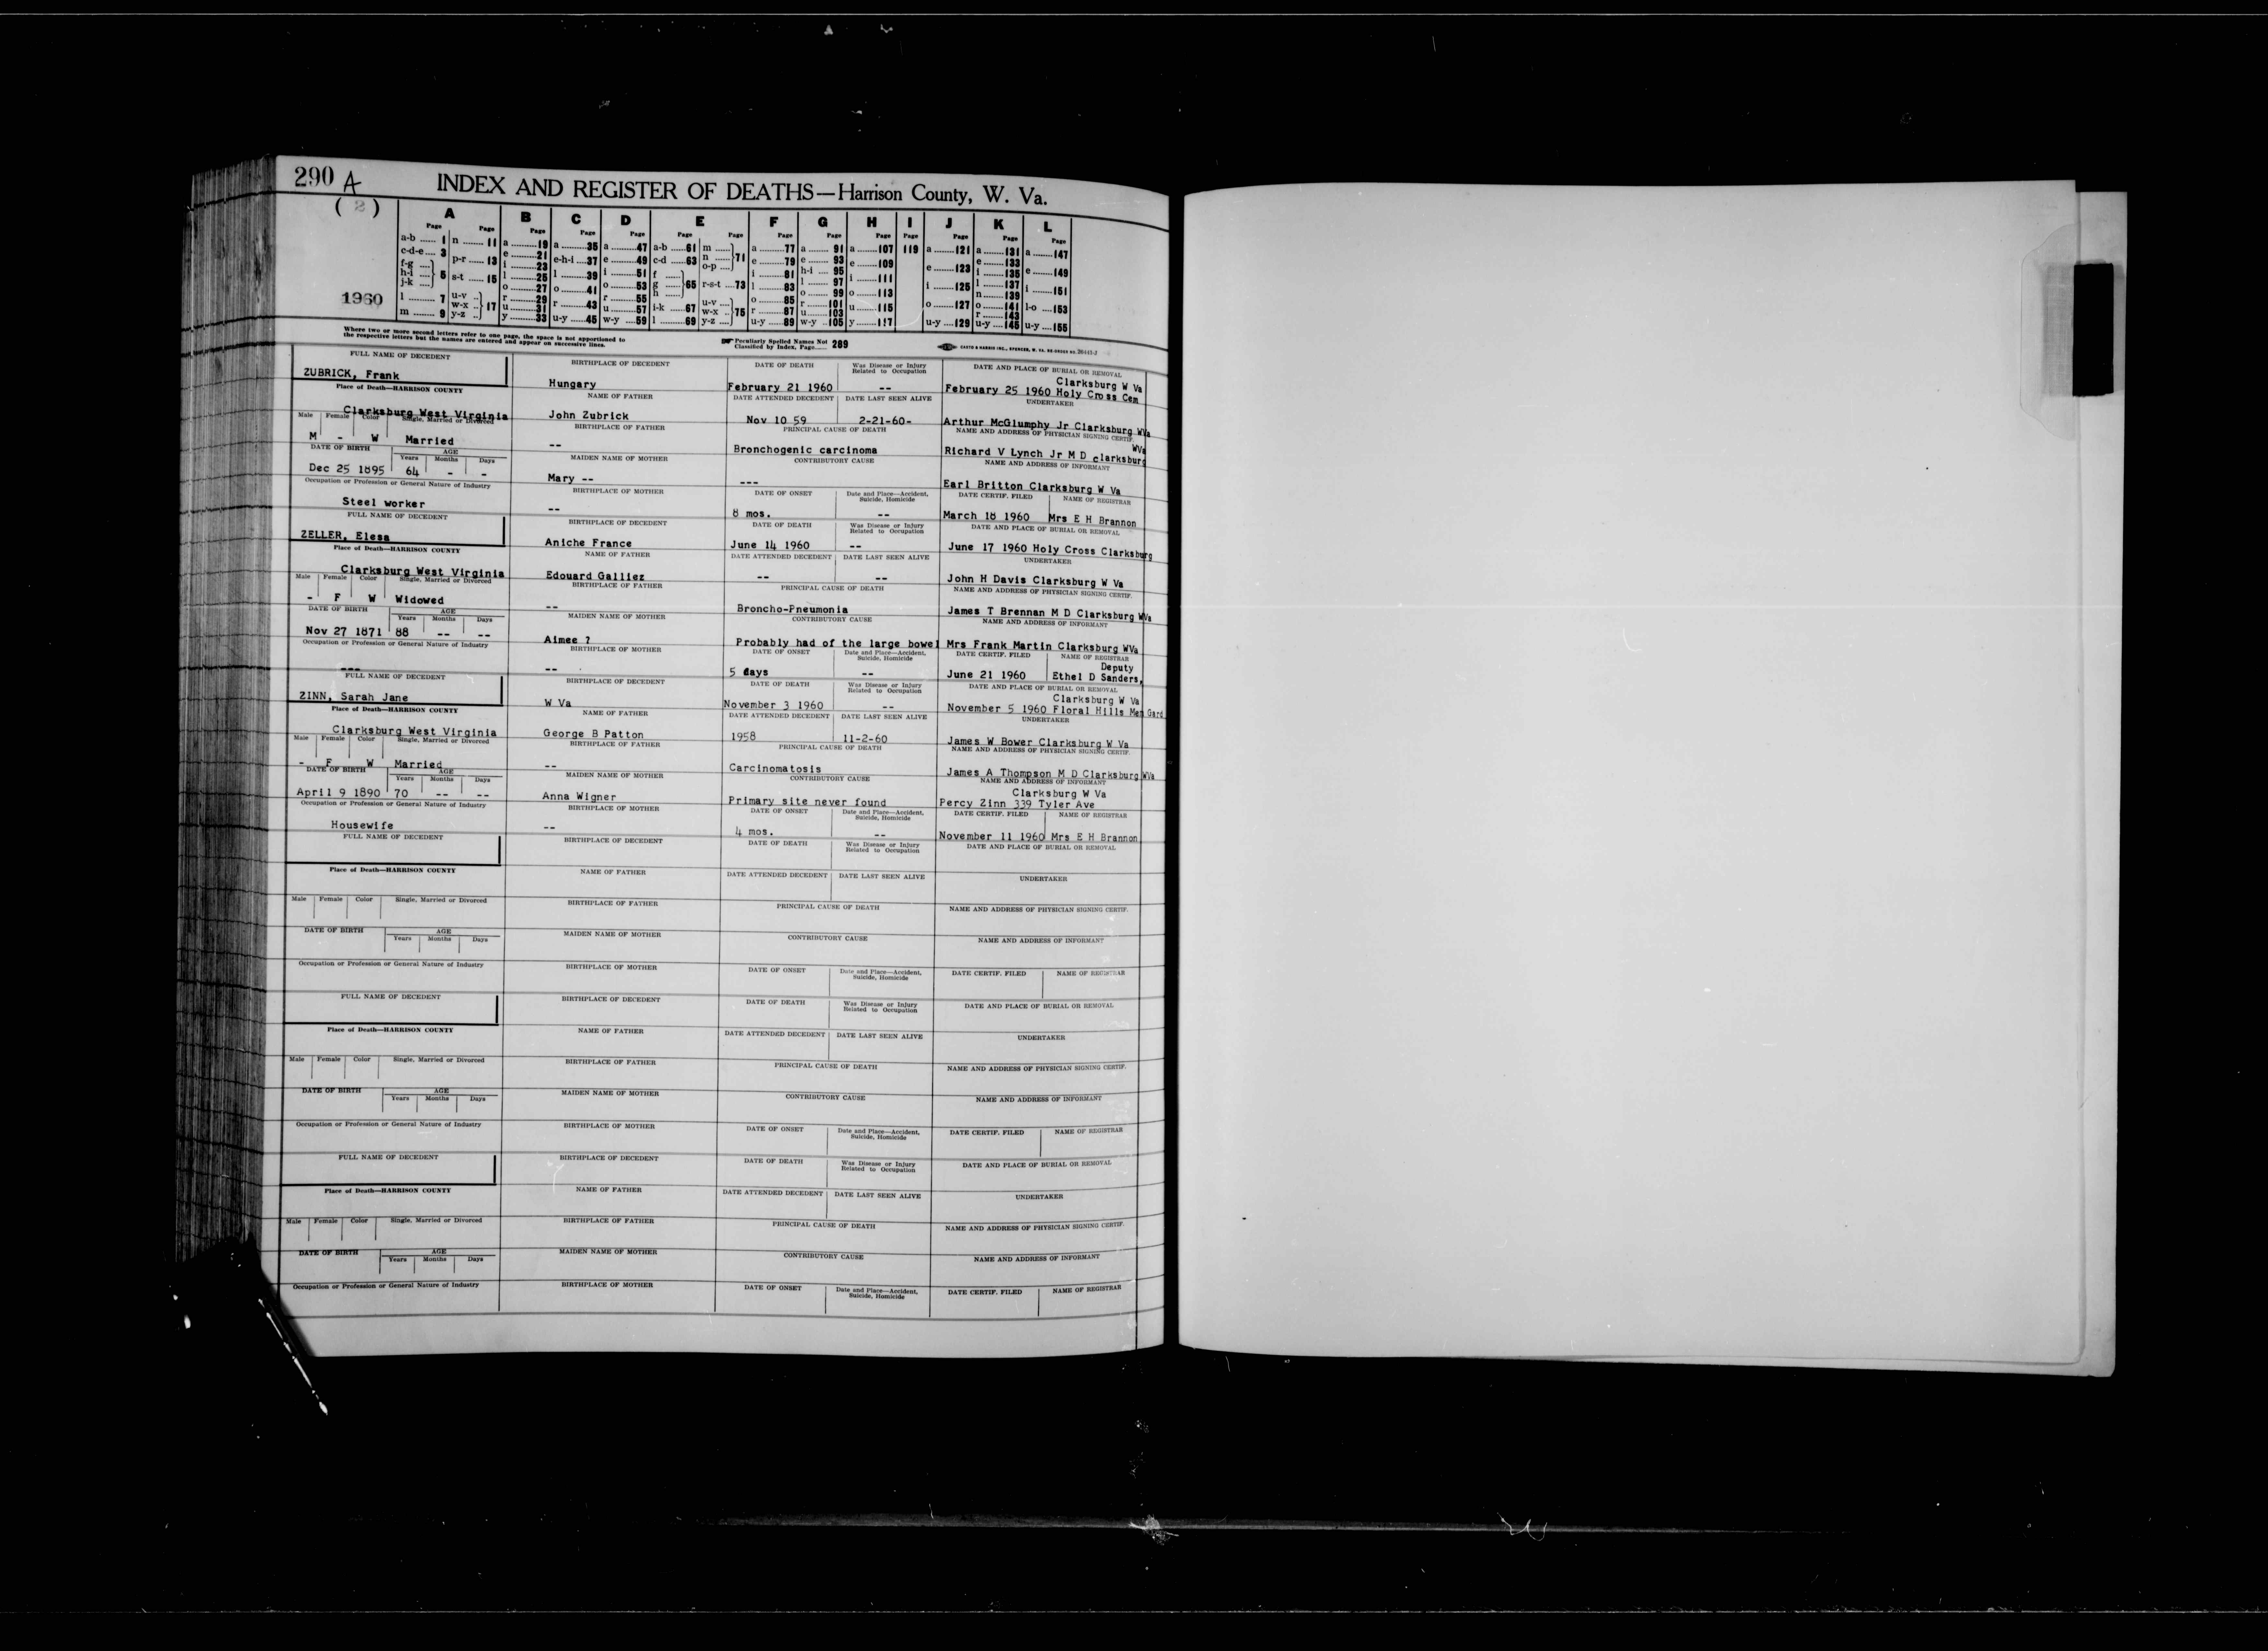 290 A
INDEX AND REGISTER OF DEATHS—Harrison County, W. Va.
( 2 )
1960
A B C D E F G H I J K L
Page Page Page Page Page Page Page Page Page Page Page Page Page Page
a-b ...... 1 n ........ 11 a ..........19 a ..........35 a ..........47 a-b ......61 m ..... a ..........77 a ........ 91 a ........107 119 a ........121 a ........131 a ........147
c-d-e .... 3 p-r ...... 13 e ..........21 e-h-i ....37 e ..........49 c-d ......63 n ...... }71 e ..........79 e ........ 93 e ........109 e ........123 e ........133 e ........149
f-g ..... } h-i ..... } 5 s-t ...... 15 i ..........23 l ..........39 i ..........51 f ...... o-p .... i ..........81 h-i .... 95 i ........111 i ........125 i ........135 i ........151
j-k ..... } l ..........25 o ..........41 o ..........53 g ...... }65 r-s-t ....73 l ..........83 l ........ 97 o ........113 o ........127 l ........137 l-o ....153
l .......... 7 u-v .. o ..........27 r ..........43 r ..........55 h ...... u-v ..... o ..........85 o ........ 99 u ........115 u-y ....129 n ........139 u-y ....155
m ........ 9 w-x .. } 17 r ..........29 u-y ......45 u ..........57 i-k ......67 w-x .. }75 r ..........87 r ........101 y ........117 o ........141
y-z .. u ..........31 w-y ......59 l ..........69 y-z .... u-y ......89 u ........103 r ........143
y ..........33 w-y ..105 u-y ....145
Where two or more second letters refer to one page, the space is not apportioned to
the respective letters but the names are entered and appear on successive lines.
Peculiarly Spelled Names Not
Classified by Index, Page...... 289
CASTO & HARRIS INC., SPENCER, W. VA. RE-ORDER NO.
FULL NAME OF DECEDENT BIRTHPLACE OF DECEDENT DATE OF DEATH Was Disease or Injury Related to Occupation DATE AND PLACE OF BURIAL OR REMOVAL
Clarksburg W Va
ZUBRICK, Frank Hungary February 21 1960 -- February 25 1960 Holy Cross Cem
Place of Death—HARRISON COUNTY NAME OF FATHER DATE ATTENDED DECEDENT DATE LAST SEEN ALIVE UNDERTAKER
Clarksburg West Virginia John Zubrick Nov 10 59 2-21-60- Arthur McGlumphy Jr Clarksburg WVa
Male Female Color Single, Married or Divorced BIRTHPLACE OF FATHER PRINCIPAL CAUSE OF DEATH NAME AND ADDRESS OF PHYSICIAN SIGNING CERTIF.
WVa
M - W Married -- Bronchogenic carcinoma Richard V Lynch Jr M D clarksburg
DATE OF BIRTH AGE Years Months Days MAIDEN NAME OF MOTHER CONTRIBUTORY CAUSE NAME AND ADDRESS OF INFORMANT
Dec 25 1895 64 - - Mary -- --- Earl Britton Clarksburg W Va
Occupation or Profession or General Nature of Industry BIRTHPLACE OF MOTHER DATE OF ONSET Date and Place—Accident, Suicide, Homicide DATE CERTIF. FILED NAME OF REGISTRAR
Steel worker -- 8 mos. -- March 18 1960 Mrs E H Brannon
FULL NAME OF DECEDENT BIRTHPLACE OF DECEDENT DATE OF DEATH Was Disease or Injury Related to Occupation DATE AND PLACE OF BURIAL OR REMOVAL
ZELLER, Elesa Aniche France June 14 1960 -- June 17 1960 Holy Cross Clarksburg
Place of Death—HARRISON COUNTY NAME OF FATHER DATE ATTENDED DECEDENT DATE LAST SEEN ALIVE UNDERTAKER
Clarksburg West Virginia Edouard Galliez -- -- John H Davis Clarksburg W Va
Male Female Color Single, Married or Divorced BIRTHPLACE OF FATHER PRINCIPAL CAUSE OF DEATH NAME AND ADDRESS OF PHYSICIAN SIGNING CERTIF.
- F W Widowed -- Broncho-Pneumonia James T Brennan M D Clarksburg WVa
DATE OF BIRTH AGE Years Months Days MAIDEN NAME OF MOTHER CONTRIBUTORY CAUSE NAME AND ADDRESS OF INFORMANT
Nov 27 1871 88 -- -- Aimee ? Probably had of the large bowel Mrs Frank Martin Clarksburg WVa
Occupation or Profession or General Nature of Industry BIRTHPLACE OF MOTHER DATE OF ONSET Date and Place—Accident, Suicide, Homicide DATE CERTIF. FILED NAME OF REGISTRAR
Deputy
--- -- 5 days -- June 21 1960 Ethel D Sanders,
FULL NAME OF DECEDENT BIRTHPLACE OF DECEDENT DATE OF DEATH Was Disease or Injury Related to Occupation DATE AND PLACE OF BURIAL OR REMOVAL
Clarksburg W Va
ZINN, Sarah Jane W Va November 3 1960 -- November 5 1960 Floral Hills Mem Gard
Place of Death—HARRISON COUNTY NAME OF FATHER DATE ATTENDED DECEDENT DATE LAST SEEN ALIVE UNDERTAKER
Clarksburg West Virginia George B Patton 1958 11-2-60 James W Bower Clarksburg W Va
Male Female Color Single, Married or Divorced BIRTHPLACE OF FATHER PRINCIPAL CAUSE OF DEATH NAME AND ADDRESS OF PHYSICIAN SIGNING CERTIF.
- F W Married -- Carcinomatosis James A Thompson M D Clarksburg WVa
DATE OF BIRTH AGE Years Months Days MAIDEN NAME OF MOTHER CONTRIBUTORY CAUSE NAME AND ADDRESS OF INFORMANT
Clarksburg W Va
April 9 1890 70 -- -- Anna Wigner Primary site never found Percy Zinn 339 Tyler Ave
Occupation or Profession or General Nature of Industry BIRTHPLACE OF MOTHER DATE OF ONSET Date and Place—Accident, Suicide, Homicide DATE CERTIF. FILED NAME OF REGISTRAR
Housewife -- 4 mos. -- November 11 1960 Mrs E H Brannon
FULL NAME OF DECEDENT BIRTHPLACE OF DECEDENT DATE OF DEATH Was Disease or Injury Related to Occupation DATE AND PLACE OF BURIAL OR REMOVAL
Place of Death—HARRISON COUNTY NAME OF FATHER DATE ATTENDED DECEDENT DATE LAST SEEN ALIVE UNDERTAKER
Male Female Color Single, Married or Divorced BIRTHPLACE OF FATHER PRINCIPAL CAUSE OF DEATH NAME AND ADDRESS OF PHYSICIAN SIGNING CERTIF.
DATE OF BIRTH AGE Years Months Days MAIDEN NAME OF MOTHER CONTRIBUTORY CAUSE NAME AND ADDRESS OF INFORMANT
Occupation or Profession or General Nature of Industry BIRTHPLACE OF MOTHER DATE OF ONSET Date and Place—Accident, Suicide, Homicide DATE CERTIF. FILED NAME OF REGISTRAR
FULL NAME OF DECEDENT BIRTHPLACE OF DECEDENT DATE OF DEATH Was Disease or Injury Related to Occupation DATE AND PLACE OF BURIAL OR REMOVAL
Place of Death—HARRISON COUNTY NAME OF FATHER DATE ATTENDED DECEDENT DATE LAST SEEN ALIVE UNDERTAKER
Male Female Color Single, Married or Divorced BIRTHPLACE OF FATHER PRINCIPAL CAUSE OF DEATH NAME AND ADDRESS OF PHYSICIAN SIGNING CERTIF.
DATE OF BIRTH AGE Years Months Days MAIDEN NAME OF MOTHER CONTRIBUTORY CAUSE NAME AND ADDRESS OF INFORMANT
Occupation or Profession or General Nature of Industry BIRTHPLACE OF MOTHER DATE OF ONSET Date and Place—Accident, Suicide, Homicide DATE CERTIF. FILED NAME OF REGISTRAR
FULL NAME OF DECEDENT BIRTHPLACE OF DECEDENT DATE OF DEATH Was Disease or Injury Related to Occupation DATE AND PLACE OF BURIAL OR REMOVAL
Place of Death—HARRISON COUNTY NAME OF FATHER DATE ATTENDED DECEDENT DATE LAST SEEN ALIVE UNDERTAKER
Male Female Color Single, Married or Divorced BIRTHPLACE OF FATHER PRINCIPAL CAUSE OF DEATH NAME AND ADDRESS OF PHYSICIAN SIGNING CERTIF.
DATE OF BIRTH AGE Years Months Days MAIDEN NAME OF MOTHER CONTRIBUTORY CAUSE NAME AND ADDRESS OF INFORMANT
Occupation or Profession or General Nature of Industry BIRTHPLACE OF MOTHER DATE OF ONSET Date and Place—Accident, Suicide, Homicide DATE CERTIF. FILED NAME OF REGISTRAR